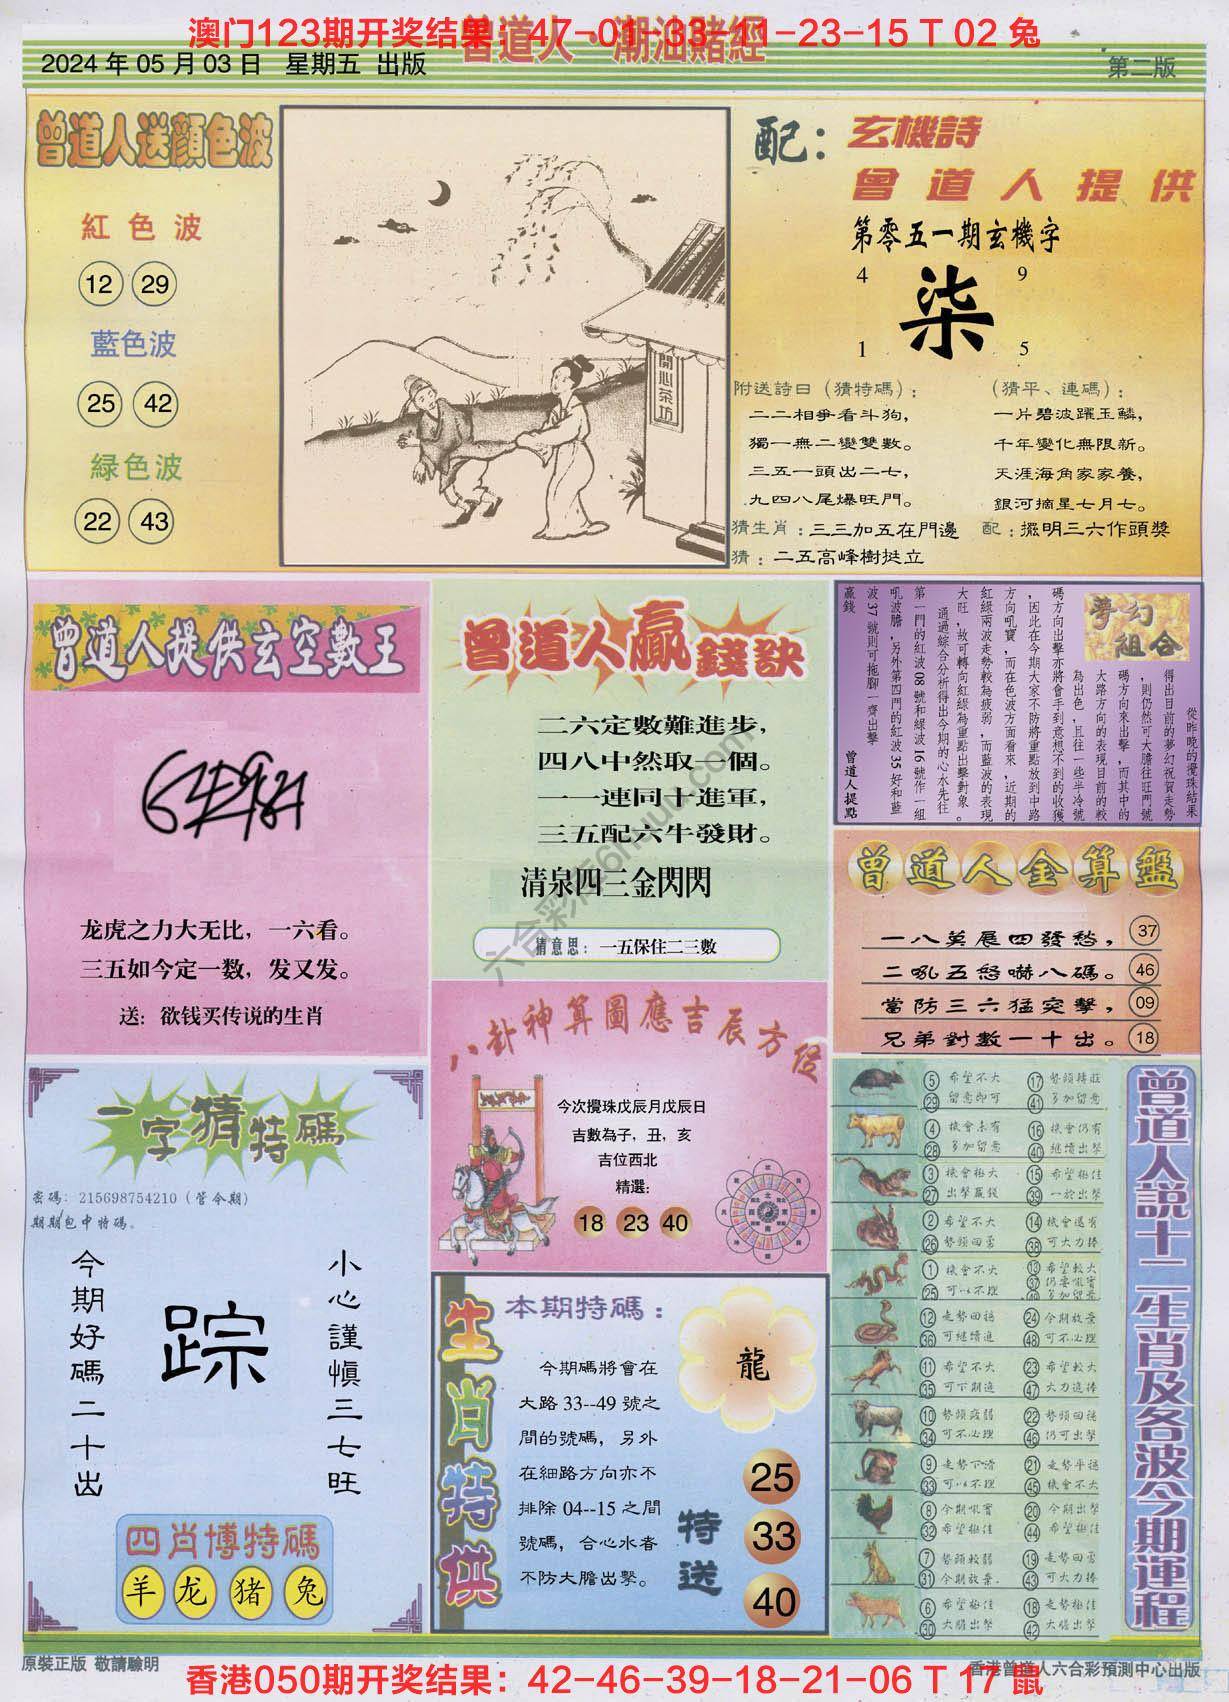 澳门123期开奖结果：47-01-33-11-23-15 T 02 兔
曾道人·潮汕賭經
2024 年 05 月 03 日 星期五 出版
第二版
曾道人送顏色波
紅色波
12 29
藍色波
25 42
緑色波
22 43
開心茶坊
配：玄機詩
曾道人提供
第零五一期玄機字
4 9
柒
1 5
附送詩曰（猜特碼）：
二二相爭看斗狗，
獨一無二變雙數。
三五一頭出二七，
九四八尾爆旺門。
（猜平、連碼）：
一片碧波躍玉鱗，
千年變化無限新。
天涯海角家家養，
銀河摘星七月七。
猜生肖：三三加五在門邊
配：擺明三六作頭獎
猜：二五高峰樹挺立
曾道人提供玄空數王
龙虎之力大无比，一六看。
三五如今定一数，发又发。
送：欲钱买传说的生肖
曾道人贏錢訣
二六定數難進步，
四八中然取一個。
一一連同十進軍，
三五配六牛發財。
清泉四三金閃閃
猜意思：一五保住二三數
夢幻組合
從昨晚的攪珠結果
得出目前的夢幻祝賀走勢
，則仍然可大膽往旺門號
碼方向來出擊，而其中的
大路方向的表現目前的較
為出色，且往一些半冷號
碼方向出擊亦將會手到意想不到的收獲
，因此在今期大家不防將重點放到中路
方向吼寶，而在色波方面看來，近期的
紅綠兩波走勢較為疲弱，而藍波的表現
大旺，故可轉向紅綠為重點出擊對象。
通過綜合分析得出今期的心水先往
第一門的紅波 08 號和綠波 16 號作一組
吼波膽，另外第四門的紅波 35 好和藍
波 37 號則可拖腳一齊出擊
贏錢
曾道人提點
曾道人金算盤
一八英展四發愁， 37
二吼五怒嚇八碼。 46
當防三六猛突擊， 09
兄弟對數一十出。 18
八卦神算圖應吉辰方位
今次攪珠戊辰月戊辰日
吉數為子，丑，亥
吉位西北
精選：
18 23 40
一字猜特碼
密碼：215698754210（管今期）
期期包中特碼。
今期好碼二十出
踪
小心謹慎三七旺
四肖博特碼
羊 龙 猪 兔
生肖特供
本期特碼：
龍
今期碼將會在
大路 33--49 號之
間的號碼，另外
在細路方向亦不
排除 04--15 之間
號碼，合心水者
不防大膽出擊。
特送
25
33
40
曾道人説十二生肖及各波今期運程
5 29 希望不大 留意即可 17 41 勢頭轉旺 多加留意
4 28 機會未有 多加留意 16 40 機會仍有 繼續出擊
3 27 機會極大 出擊贏錢 15 39 希望極佳 一於出擊
2 26 希望不大 勢頭回勇 14 38 機會還有 可大力捧
1 25 機會不大 可以不理 13 37 49 希望較大 仍要吼實 多加留意
12 36 走勢回穩 可繼續追 24 48 今期放棄 可不必理
11 35 希望不大 可下期追 23 47 希望較大 大力追捧
10 34 勢頭疲弱 可不必理 22 46 勢頭回穩 仍可出擊
9 33 走勢下滑 可以不理 21 45 走勢平穩 機會不大
8 32 今期吼實 希望極佳 20 44 今期出擊 希望極佳
7 31 勢頭較弱 今期放棄 19 43 走勢回勇 可大力捧
6 30 希望極佳 大膽出擊 18 42 走勢極佳 大膽出擊
原裝正版 敬請驗明
香港曾道人六合彩預測中心出版
香港050期开奖结果：42-46-39-18-21-06 T 17 鼠